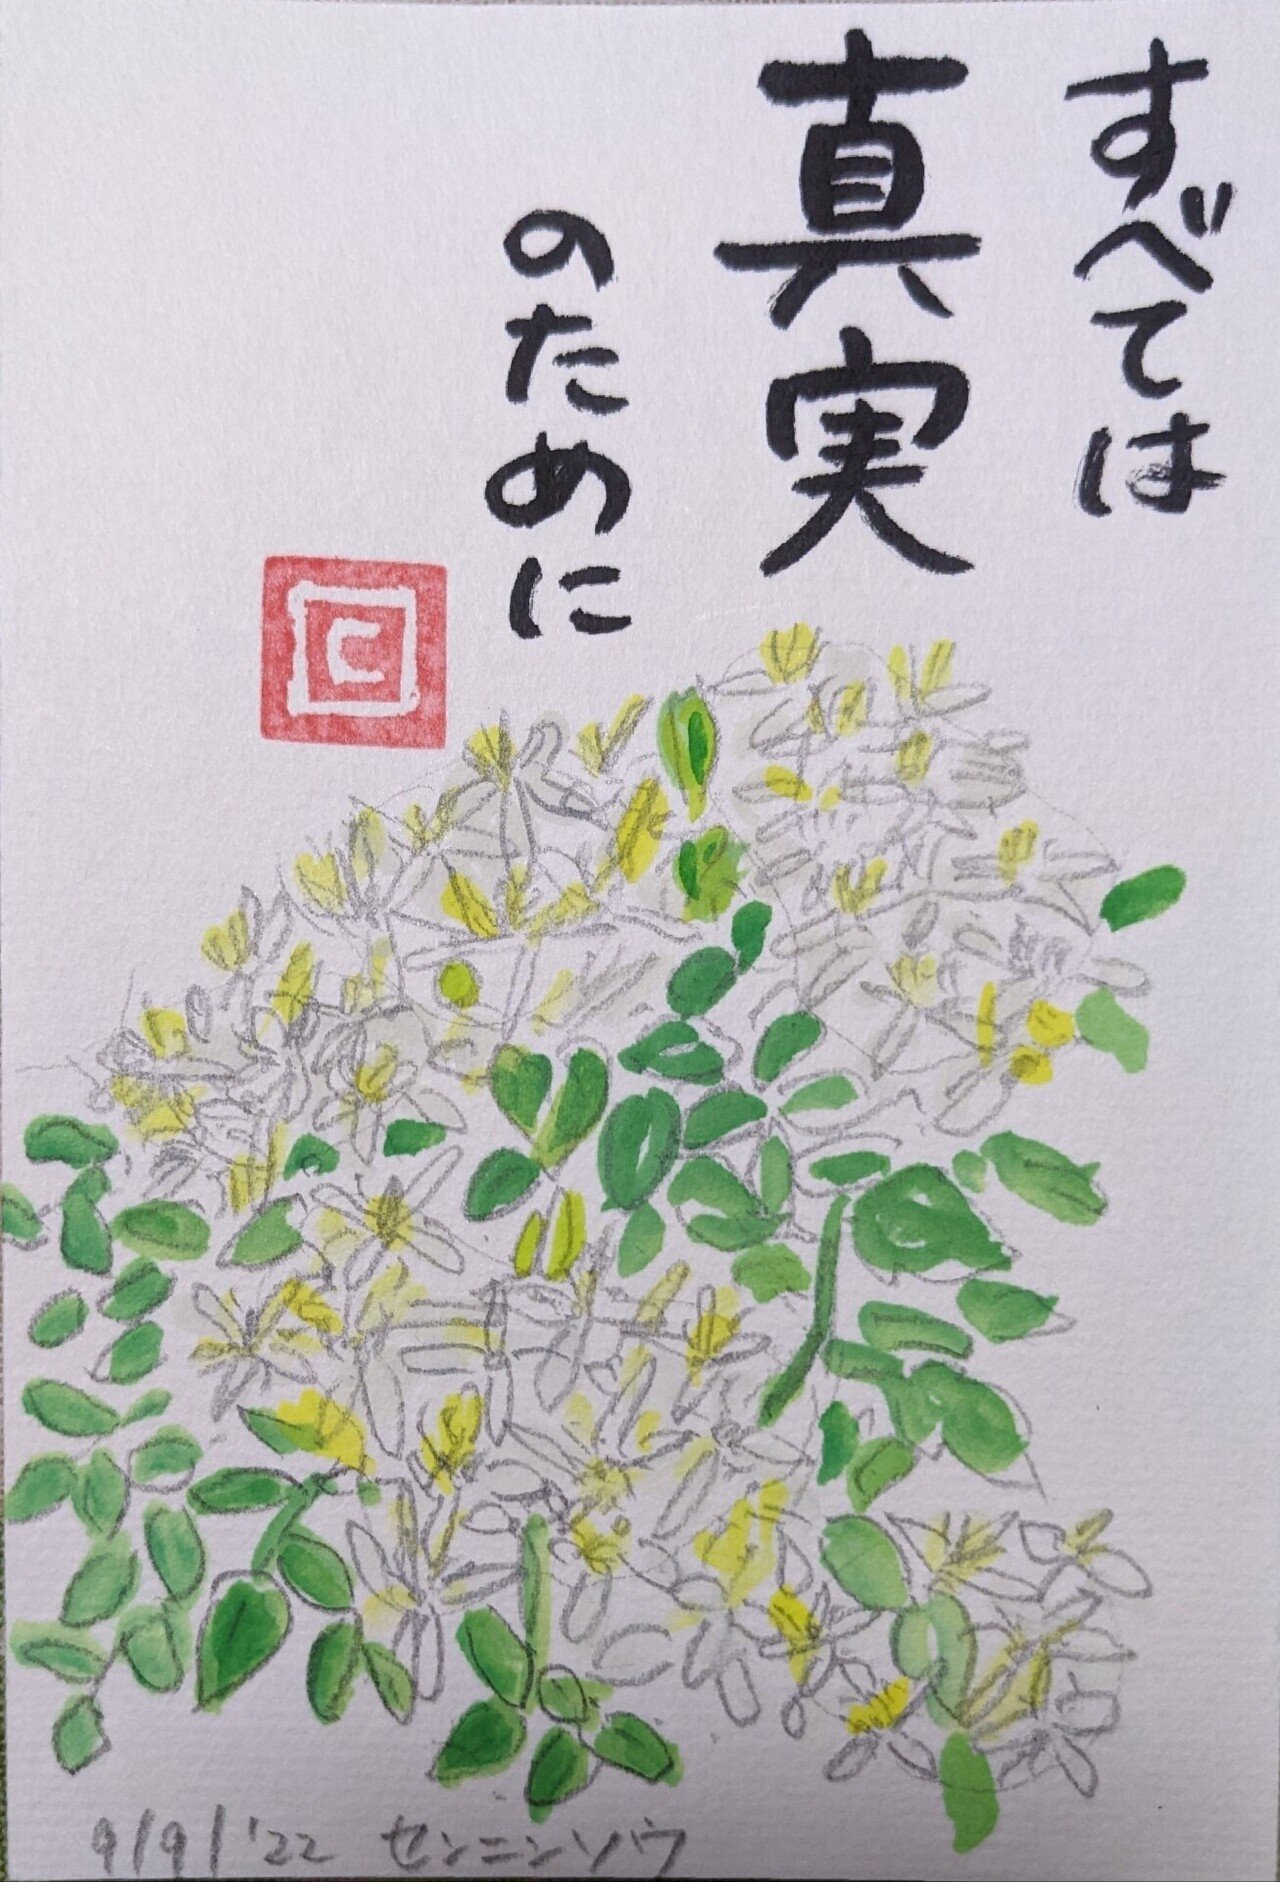 すべては
真実
のために
C
9/9/'22 センニンソウ